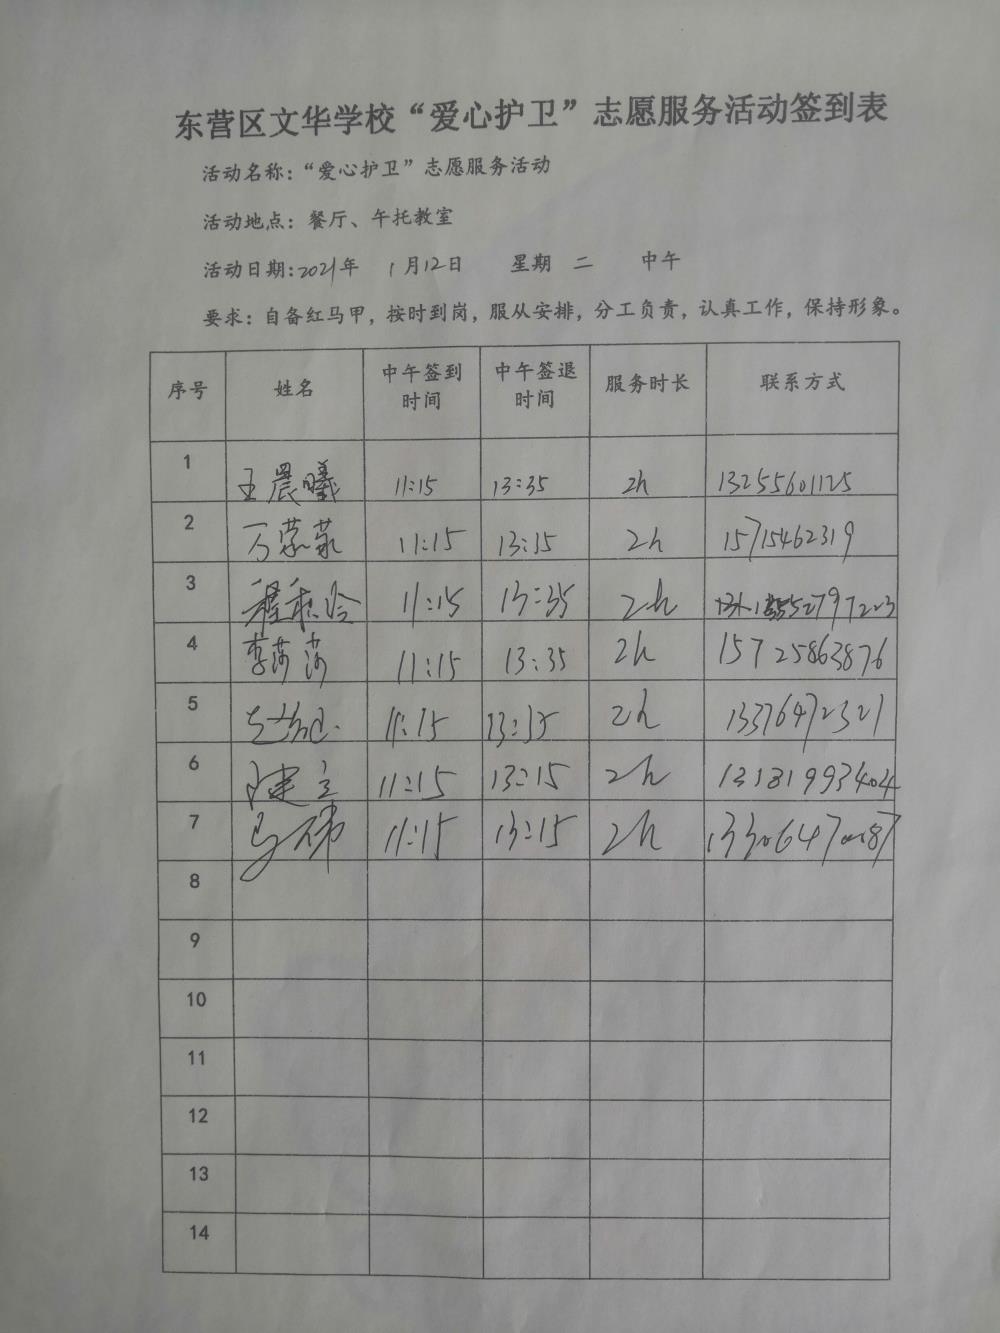 东营区文华学校“爱心护卫”志愿服务活动签到表
活动名称：“爱心护卫”志愿服务活动
活动地点：餐厅、午托教室
活动日期：2021年 1月12日 星期 二 中午
要求：自备红马甲，按时到岗，服从安排，分工负责，认真工作，保持形象。
序号 姓名 中午签到时间 中午签退时间 服务时长 联系方式
1 王晨曦 11:15 13:35 2h 13255601125
2 11:15 13:15 2h 15715462319
3 11:15 13:35 2h
4 李莎莎 11:15 13:35 2h 15725863876
5 11:15 13:35 2h 13376472321
6 11:15 13:15 2h 13181993404
7 马伟 11:15 13:15 2h 13306470087
8
9
10
11
12
13
14